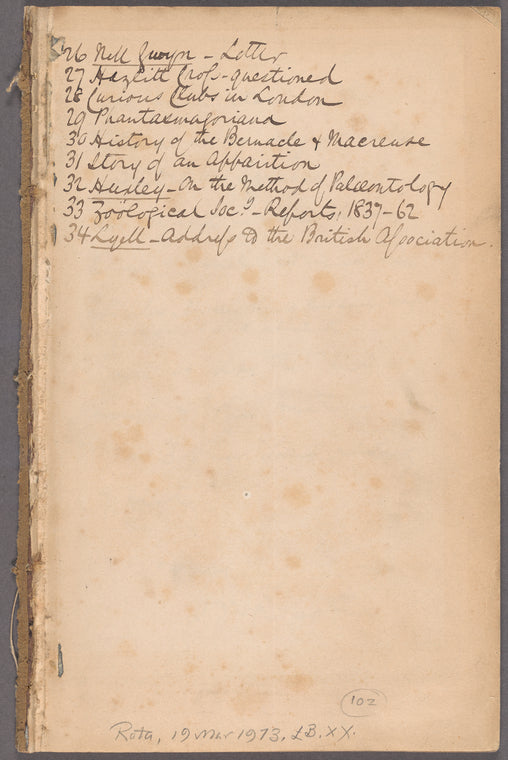 26 Nell Gwyn - Letter
27 Hazlitt Cross-questioned
28 Curious Clubs in London
29 Phantasmagoriana
30 History of the Bernacle & Macreuse
31 Story of an Apparition
32 Huxley - On the Method of Palæontology
33 Zoölogical Soc.y - Reports, 1837-62
34 Lyell - Address to the British Association.
102
Rota, 19 Mar 1973, £B.XX.